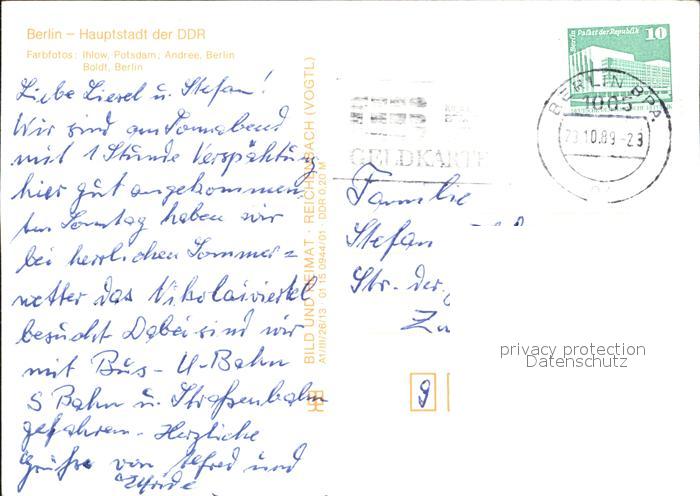 Berlin – Hauptstadt der DDR
Farbfotos: Ihlow, Potsdam; Andree, Berlin
Boldt, Berlin
Liebe Liesel u. Stefan!
Wir sind am Sonnabend
mit 1 Stunde Verspähtung
hier gut angekommen.
Am Sonntag haben wir
bei herrlichen Sommer=
wetter das Nikolaiviertel
besucht. Dabei sind wir
mit Bus- U-Bahn
S Bahn u. Straßenbahn
gefahren. Herzliche
Grüße von Alfred und
BILD UND HEIMAT · REICHENBACH (VOGTL)
A1/III/26/13 01 15 0944/01 · DDR 0,20 M
Berlin Palast der Republik
10
GELDKARTE
BERLIN BPA
1085
23.10.89-23
Familie
Stefan
Str. der
Z
9
privacy protection
Datenschutz